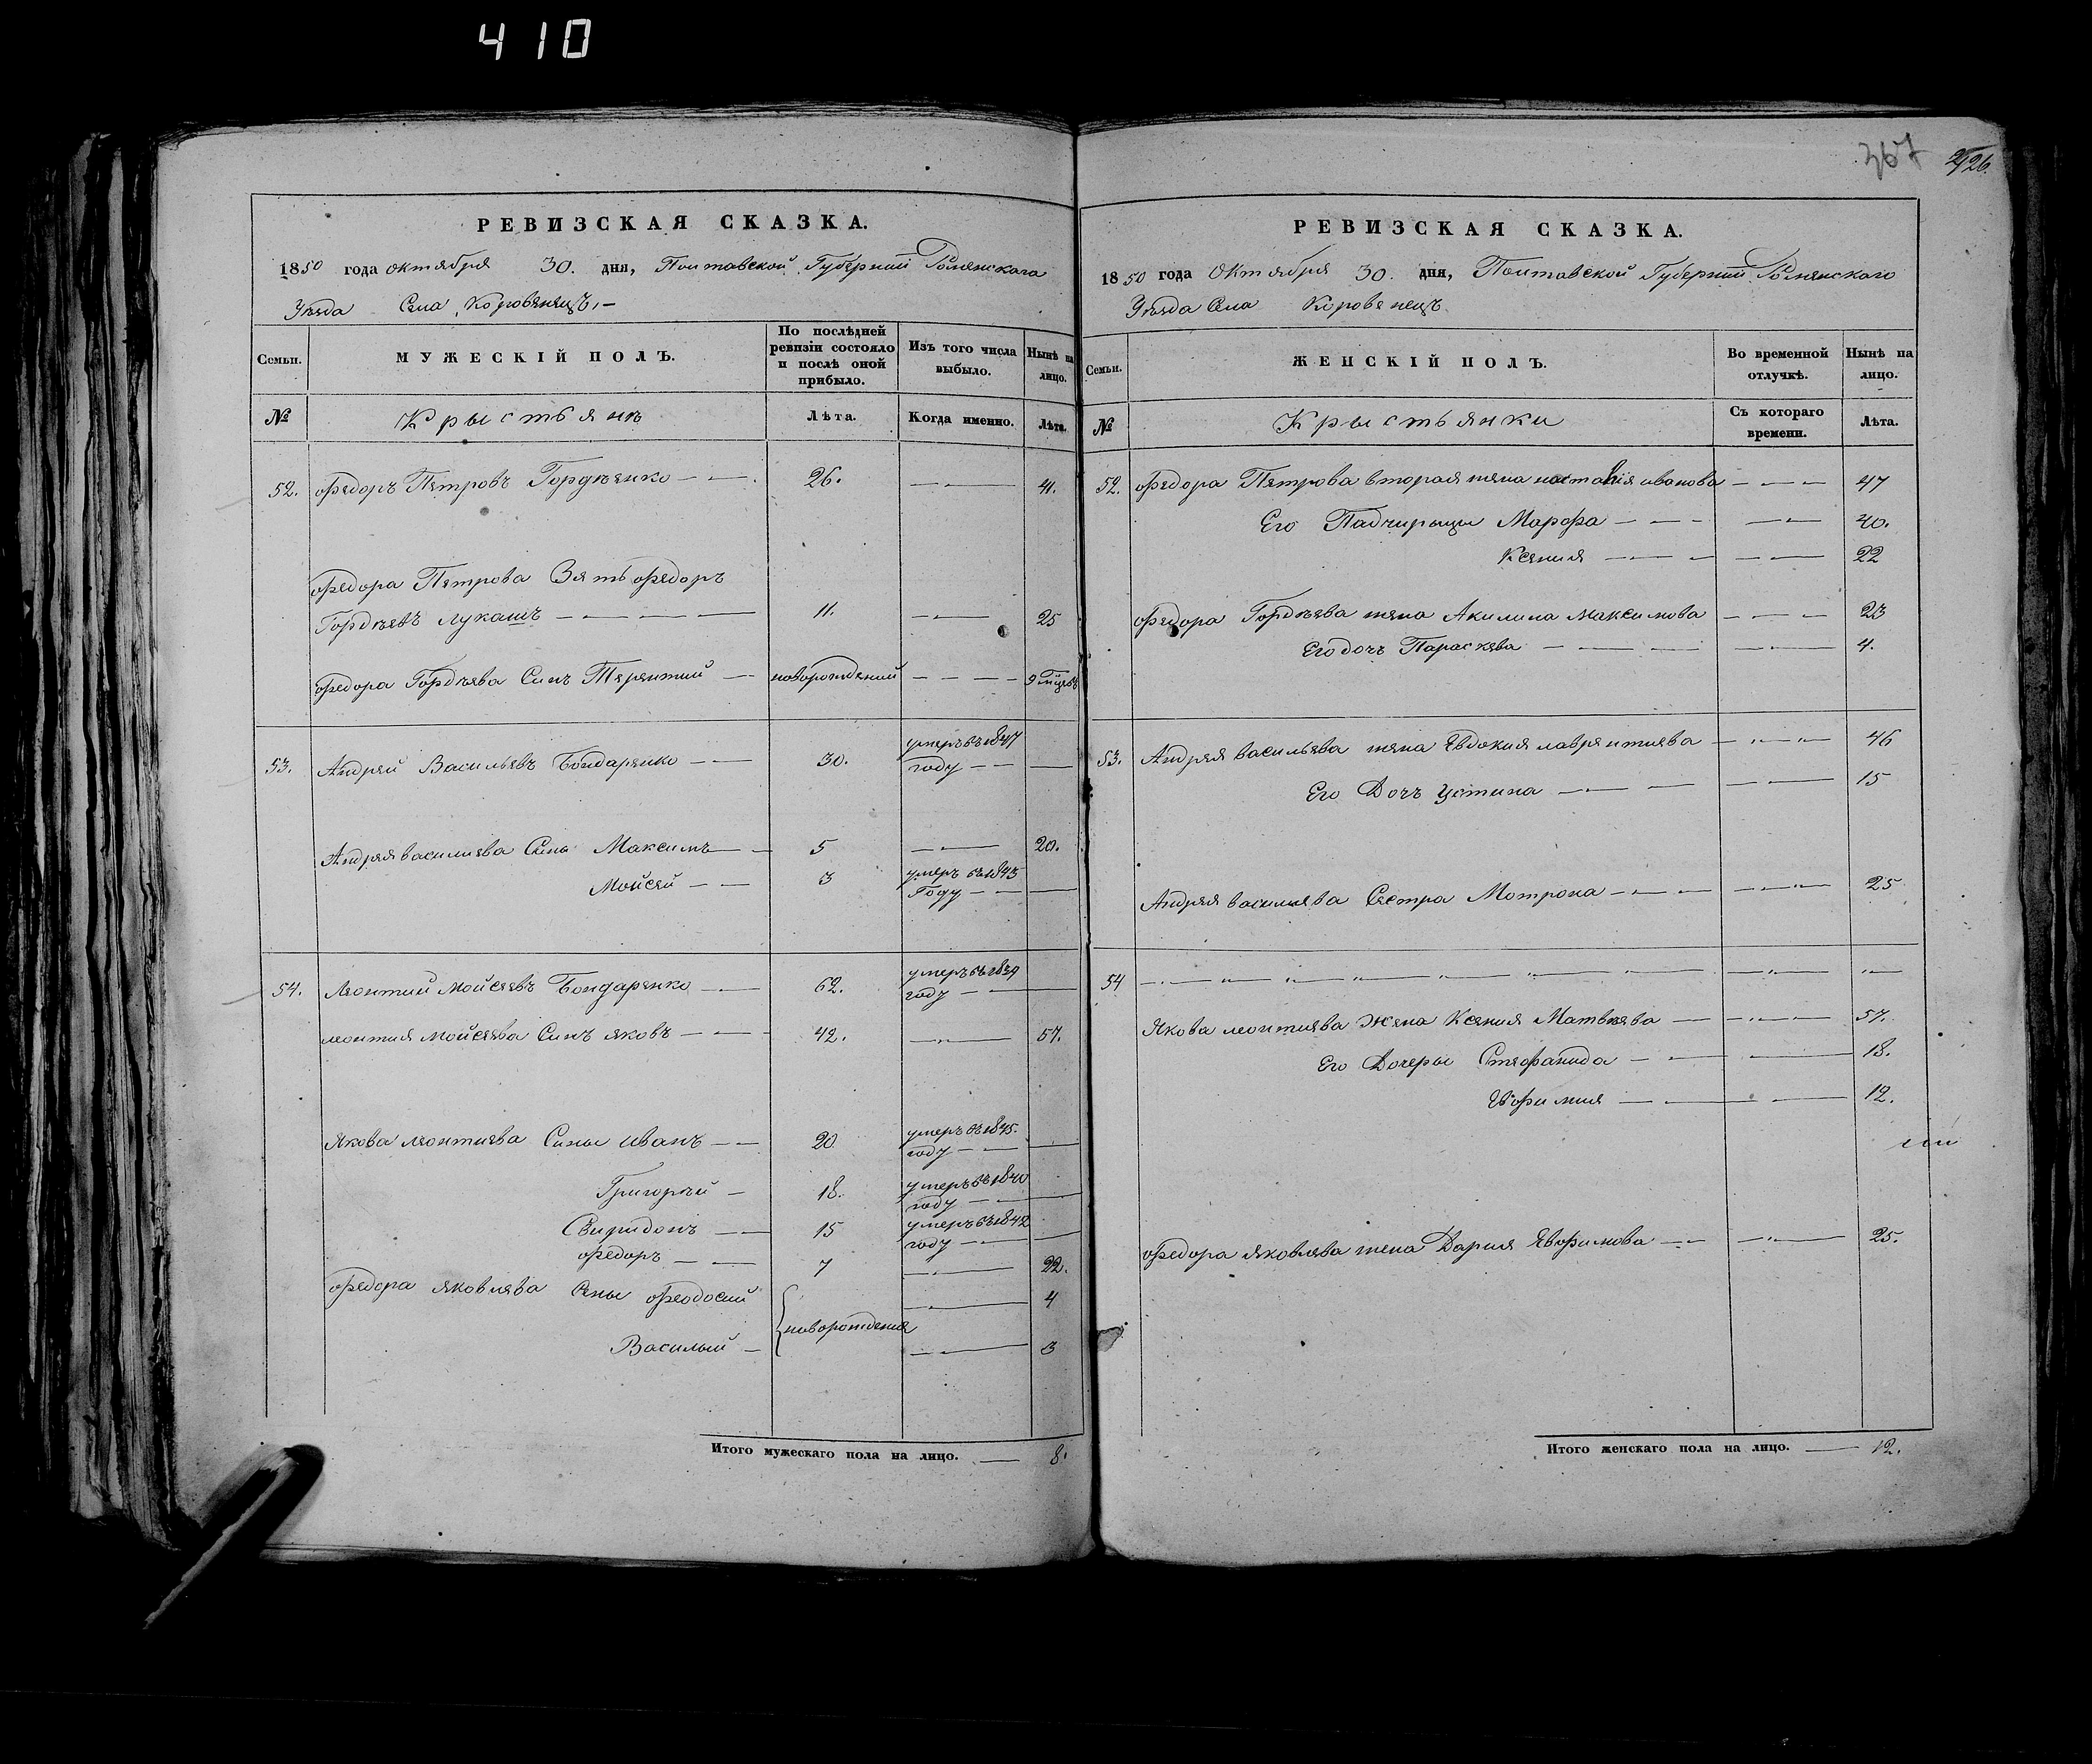 410
367
РЕВИЗСКАЯ СКАЗКА.
1850 года октября 30. дня, Полтавской Губернии Роменскаго
Уезда Села Коровенецъ,—
Семьи. МУЖЕСКІЙ ПОЛЪ. По послѣдней ревизіи состояло и послѣ оной прибыло. Изъ того числа выбыло. Нынѣ на лицо.
№ Крыстьянъ Лѣта. Когда именно. Лѣта.
52. Федоръ Петровъ Гордѣенко — — 26. — — 41.
Федора Петрова Зять Федоръ
Гордѣевъ Лукашъ — — — — 11. — — 25
Федора Гордѣева Синъ Терентий — новорождений — — — 9
53. Андрей Васильевъ Бондаренко — — 30. умеръ въ 1847
году — — —
Андрея василиева Сины Максимъ — — 5 — — 20.
Мойсей — — 3 умеръ въ 1843
Году — — —
54. Леонтий Мойсеевъ Бондаренко — — 62. умеръ въ 1839
году — —
леонтия мойсеева Синъ яковъ — — 42. — — 57.
Якова леонтиева Сины иванъ — — 20 умеръ въ 1845.
году — — —
Григорѣй — 18. умеръ въ 1840
году — —
Свиридонъ — — 15 умеръ въ 1842
году — — —
Федоръ — — 7 — — 22.
Федора яковлева Сины Феодосий — — 4
новорождения
Василый — — — 3
Итого мужескаго пола на лицо. — 8.
РЕВИЗСКАЯ СКАЗКА.
1850 года Октября 30. дня, Полтавской Губернии Роменскаго
Уезда Села Коровенецъ.
Семьи. ЖЕНСКІЙ ПОЛЪ. Во временной отлучкѣ. Нынѣ на лицо.
№ Крыстьянки Съ котораго времени. Лѣта.
52. Федора Петрова вторая жена настасия иванова — — — 47
Его Падчирыцы Марфа — — — — — 40.
Ксения — — — — — 22
Федора Гордѣева жена Акилина Максимова — — — 23
Его дочъ Параскева — — — — — 4.
53. Андрея васильева жена Евдокия лаврентиева — — — 46
Его Дочъ Устина — — — — — 15
Андрея василиева Сестра Мотрона — — — — — 25
54 — — — — — — — — — —
Якова леонтиева Жена Ксения Матвѣева — — — — 57.
Его Дочеры Стефанида — — — 18.
Евфимия — — — — 12.
Федора яковлева жена Дария Евфимова — — — — 25.
Итого женскаго пола на лицо. — 12.